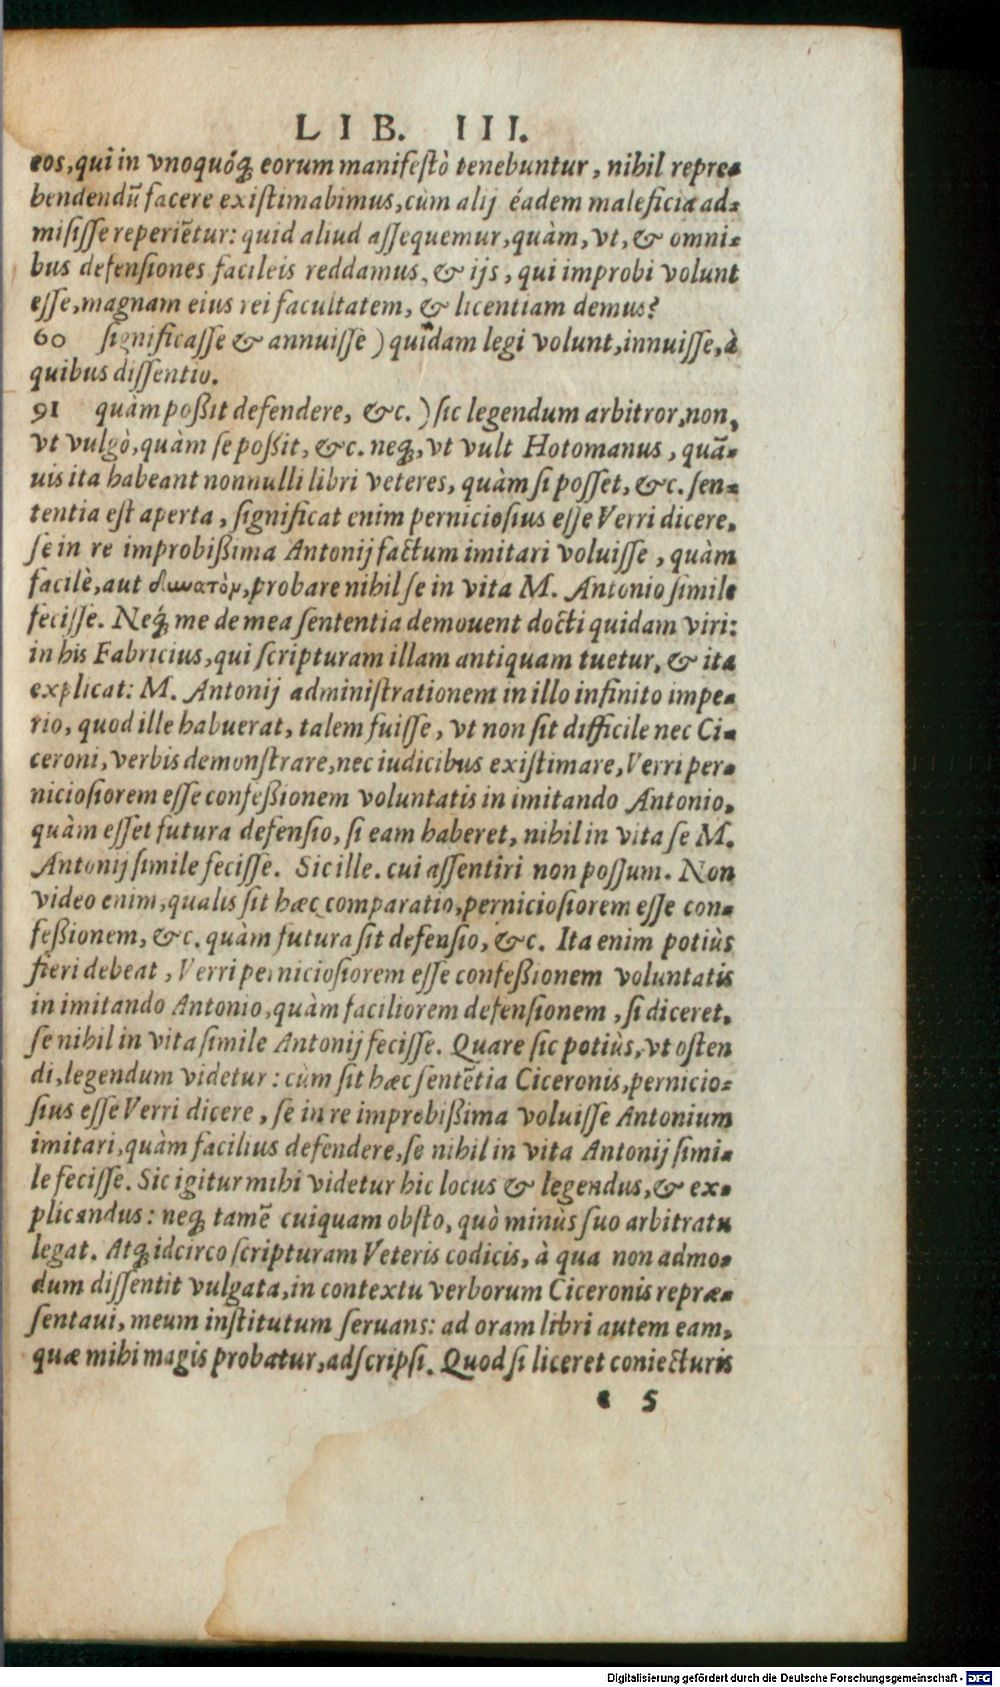 LIB. III.
eos, qui in vnoquóq; eorum manifestò tenebuntur, nihil repre-
hendendũ facere existimabimus, cùm alij éadem maleficia ad-
misisse reperiẽtur: quid aliud assequemur, quàm, vt, & omni-
bus defensiones facileis reddamus, & ijs, qui improbi volunt
esse, magnam eius rei facultatem, & licentiam demus?
60 significasse & annuisse ) quidam legi volunt, innuisse, à
quibus dissentio.
91 quàm poßit defendere, &c. ) sic legendum arbitror, non,
vt vulgò, quàm se poßit, &c. neq;, vt vult Hotomanus, quã-
uis ita habeant nonnulli libri veteres, quàm si posset, &c. sen-
tentia est aperta, significat enim perniciosius esse Verri dicere,
se in re improbißima Antonij factum imitari voluisse, quàm
facilè, aut δυνατὸν, probare nihil se in vita M. Antonio simile
fecisse. Neq; me de mea sententia demouent docti quidam viri:
in his Fabricius, qui scripturam illam antiquam tuetur, & ita
explicat: M. Antonij administrationem in illo infinito impe-
rio, quod ille habuerat, talem fuisse, vt non sit difficile nec Ci-
ceroni, verbis demonstrare, nec iudicibus existimare, Verri per-
niciosiorem esse confeßionem voluntatis in imitando Antonio,
quàm esset futura defensio, si eam haberet, nihil in vita se M.
Antonij simile fecisse. Sic ille. cui assentiri non possum. Non
video enim, qualis sit hæc comparatio, perniciosiorem esse con-
feßionem, &c. quàm futura sit defensio, &c. Ita enim potiùs
fieri debeat, Verri perniciosiorem esse confeßionem voluntatis
in imitando Antonio, quàm faciliorem defensionem, si diceret,
se nihil in vita simile Antonij fecisse. Quare sic potiùs, vt osten
di, legendum videtur: cùm sit hæc sentẽtia Ciceronis, pernicio-
sius esse Verri dicere, se in re improbißima voluisse Antonium
imitari, quàm facilius defendere, se nihil in vita Antonij simi-
le fecisse. Sic igitur mihi videtur hic locus & legendus, & ex-
plicandus: neq; tamẽ cuiquam obsto, quò minùs suo arbitratu
legat. Atq; idcirco scripturam Veteris codicis, à qua non admo-
dum dissentit vulgata, in contextu verborum Ciceronis repræ-
sentaui, meum institutum seruans: ad oram libri autem eam,
quæ mihi magis probatur, adscripsi. Quod si liceret coniecturis
e 5
Digitalisierung gefördert durch die Deutsche Forschungsgemeinschaft - DFG